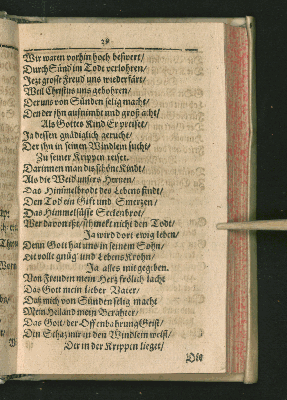 29
Wir waren vorhin hoch beswert/
Durch Sünd im Tode verlohren/
Jetzt grosse Freud uns wiederfärt/
Weil Christus uns gebohren/
Der uns von Sünden selig macht/
Den der ihn aufnimbt und groß acht/
Als Gottes Kind Er preiset/
Ja dessen gnädiglich geruhet/
Der ihn in seinen Windlein sucht/
Zu seiner Krippen reiset.
Darinnen man dis schöne Kindt/
Als die Weid unsers Herren/
Das Himmelbrodt des Lebens findt/
Den Tod ein Gift und Smerzen/
Das Himmelsüsse Seelenbrot/
Wer davon isst/schmekt nicht den Todt/
Ja wird dort ewig leben/
Denn Gott hat uns in seinem Sohn/
Die volle gnüg und Lebens Krohn/
Ja alles mit gegeben.
Von Freuden mein Hertz frölich lacht
Das Gott mein lieber Vater/
Das mich von Sünden selig macht
Mein Heiland mein Berahter/
Das Gott der Offenbahrung Geist/
Den Schaz mir in den Windlein weist/
Der in der Krippen lieget/
Die